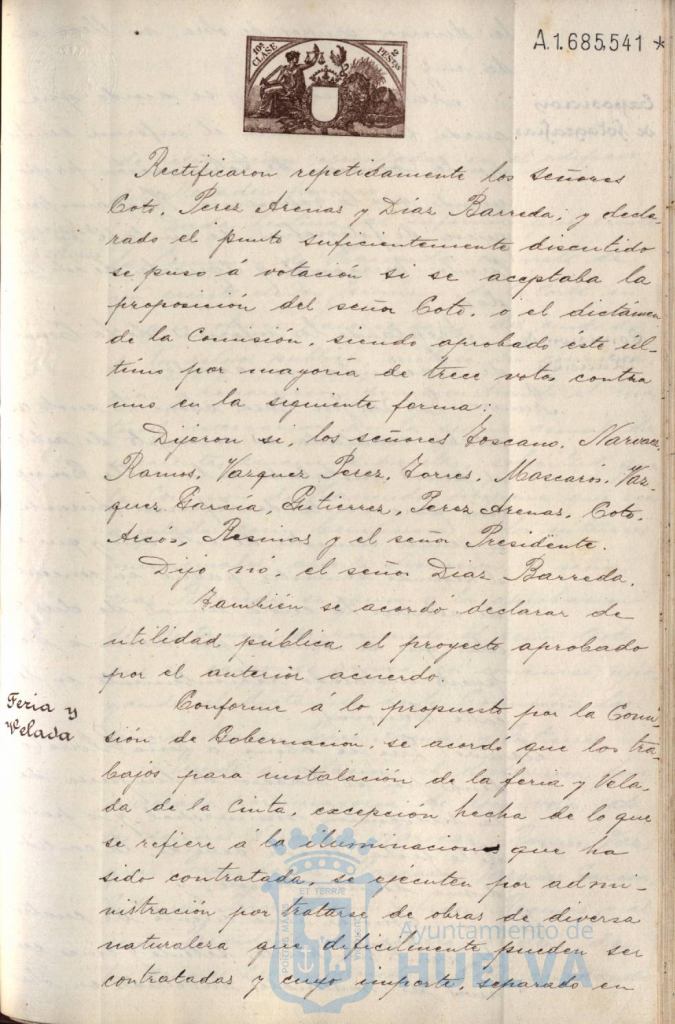 10ª CLASE 2 PESETAS
A.1.685,541 *
Rectificaron repetidamente los señores
Coto, Perez Arenas y Díaz Barreda, y decla-
rado el punto suficientemente discutido
se puso á votación si se aceptaba la
proposición del señor Coto, o el dictámen
de la Comisión, siendo aprobado éste úl-
timo por mayoría de trece votos contra
uno en la siguiente forma:
Dijeron si, los señores Toscano, Narvaez
Ramos, Vazquez Perez, Torres, Mascarós, Vaz-
quez García, Gutierrez, Perez Arenas, Coto,
Arcos, Resinas y el señor Presidente.
Dijo nó, el señor Diaz Barreda.
También se acordó declarar de
utilidad pública el proyecto aprobado
por el anterior acuerdo.
Feria y
Velada
Conforme á lo propuesto por la Comi-
sión de Gobernación, se acordó que los tra-
bajos para instalación de la feria y Vela-
da de la Cinta, excepción hecha de lo que
se refiere á la iluminacion que ha
sido contratada, se ejecuten por admi-
nistración por tratarse de obras de diversa
naturaleza que dificilmente pueden ser
contratadas y cuyo importe, separado en
PORTUS MARIS ET TERRÆ CUSTODIA
Ayuntamiento de
HUELVA